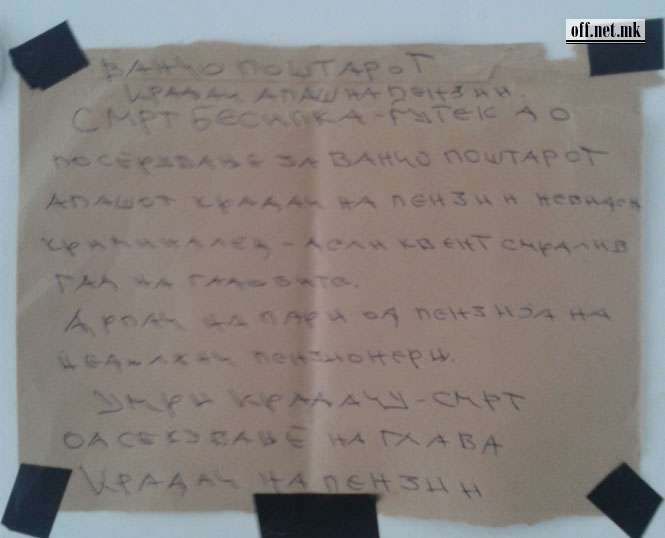 off.net.mk
ВАНЧО ПОШТАРОТ
КРАДАЧ АПАШ НА ПЕНЗИИ.
СМРТ БЕСИПКА - ГУТЕК ДО
ПОСЕРУВАЊЕ ЗА ВАНЧО ПОШТАРОТ
АПАШОТ КРАДАЧ НА ПЕНЗИИ НЕВИДЕН
КРИМИНАЛЕЦ - АСЛИ КВЕНТ СМРДЛИВ
ГАД НА ГАДОВИТЕ.
ДРПАЧ НА ПАРИ ОД ПЕНЗИЈА НА
ПЕНЗИОНЕРИ.
УМРИ КРАДАЧУ - СМРТ
ОДСЕКУВАЊЕ НА ГЛАВА
КРАДАЧ НА ПЕНЗИИ